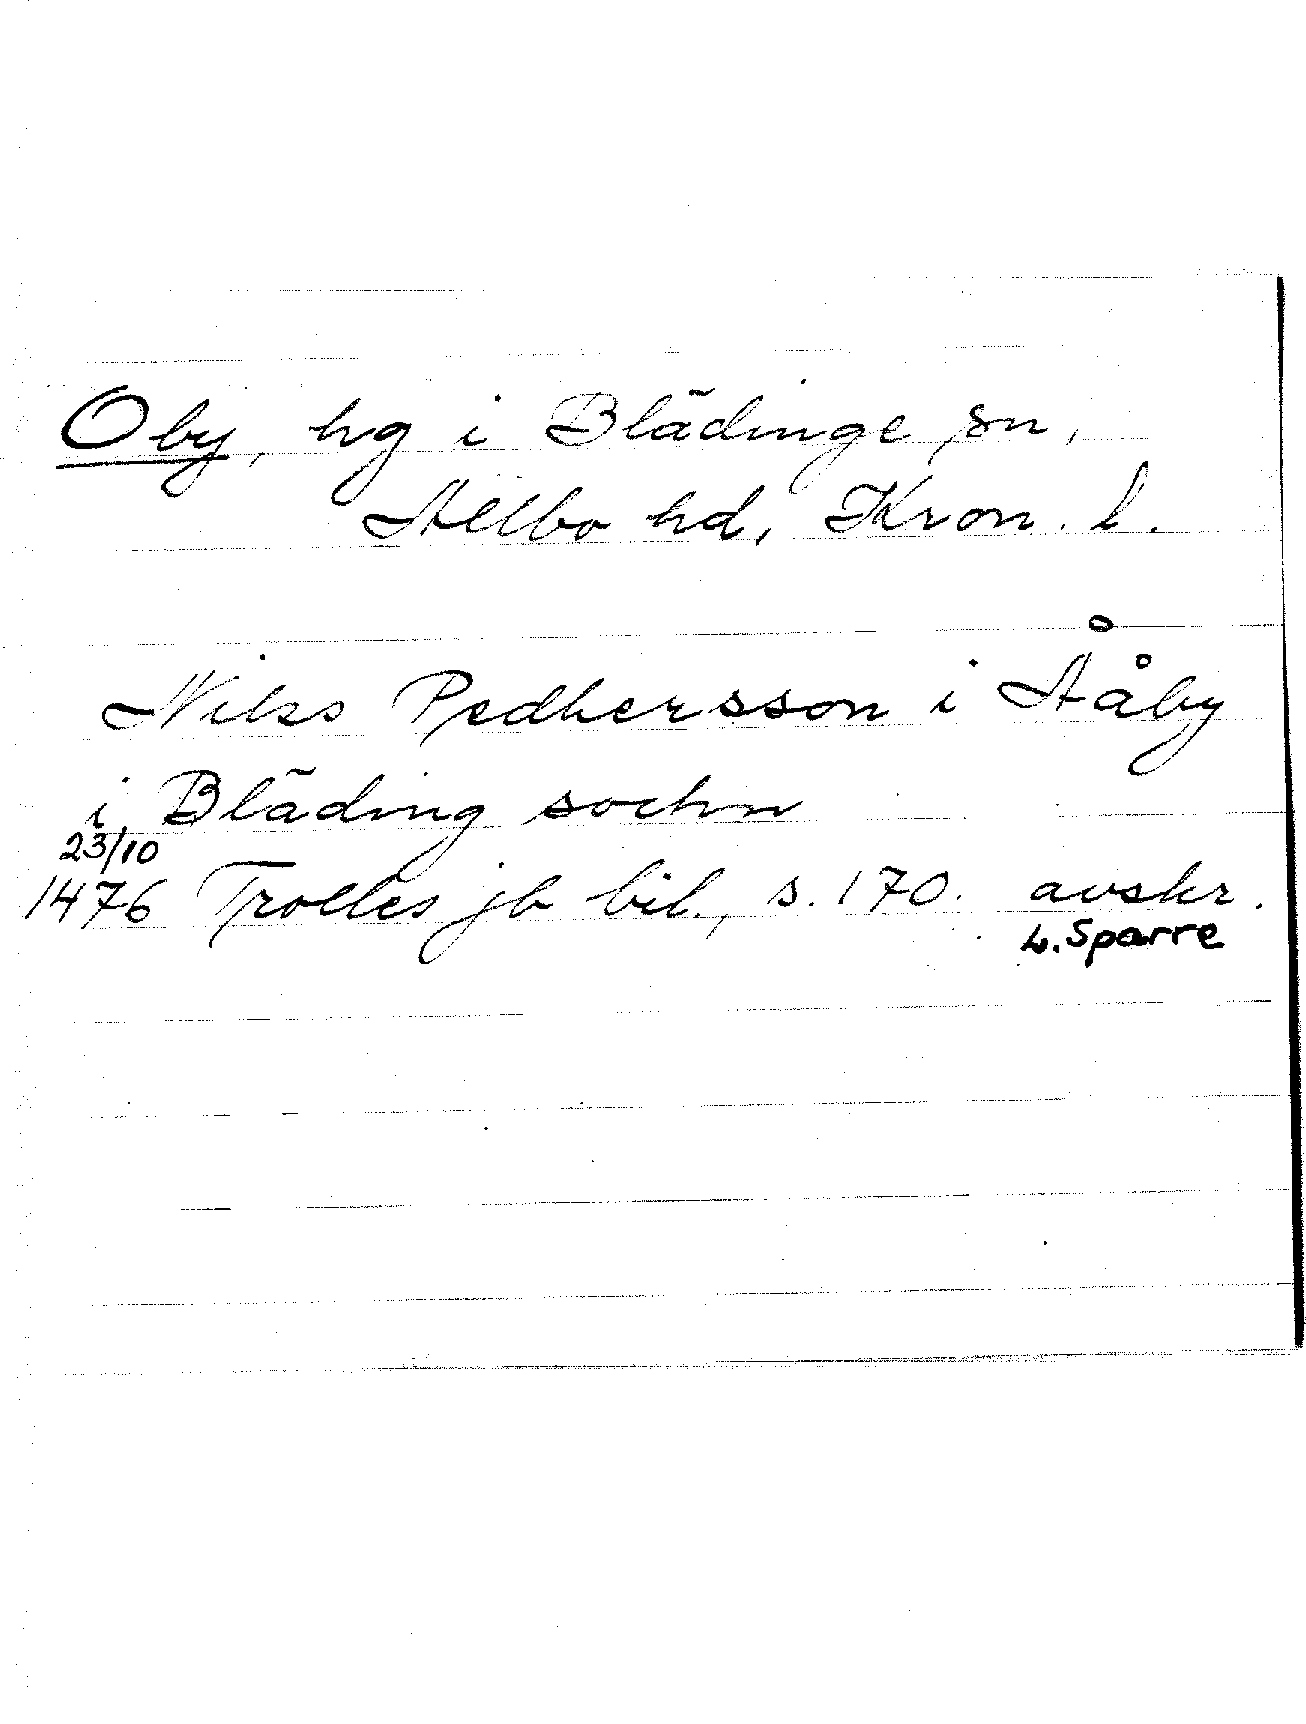 Oby, hg i Blädinge sn,
Allbo hd, Kron. l.
Nilss Pedhersson i Aåby
i Bläding sochn
23/10
1476 Trolles jb bil., s. 170. avskr.
L. Sparre